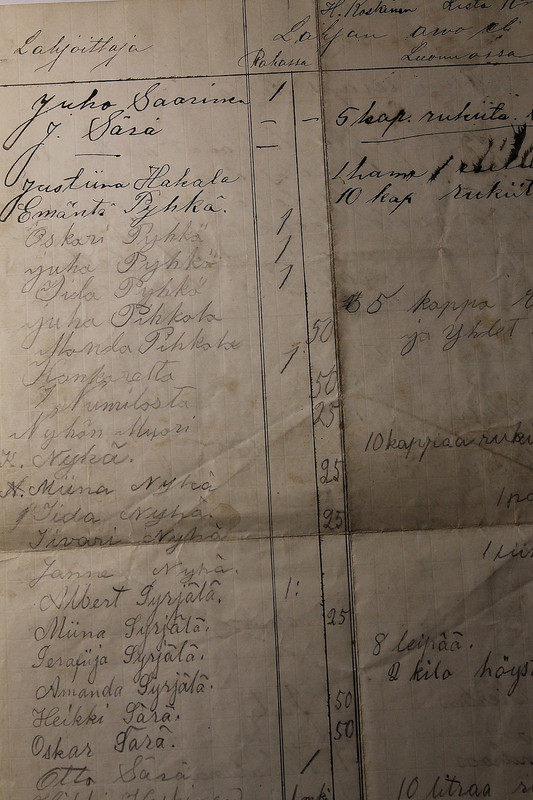 H. Koskinen Lista
Lahjoittaja Rahassa Lahjan arvo eli
Luonnossa
Juho Saarinen 1
J. Särä – – 5 kap. rukiita.
Justiina Hakala 1 hame
Emäntä Pyhkä. 10 kap rukiit
Oskari Pyhkä 1
Juha Pyhkä 1
Iida Pyhkä 1
Juha Pihkala 5 kappa
Manda Pihkala 50 ja Yhdet
Kankaretta 1
50
Nyhön Muori 25
K. Nyhä. 10 kappaa ruku
H. Miina Nyhä 25
Iida Nyhä.
Iivari Nyhä 25
Janne Nyhä.
Albert Syrjätä. 1:
Miina Syrjätä. 25
Serafija Syrjätä. 8 leipää.
Amanda Syrjätä. 2 kilo höyst
Heikki Särä. 50
Oskar Särä. 50
Otto Särä 1
1 mk 10 litraa